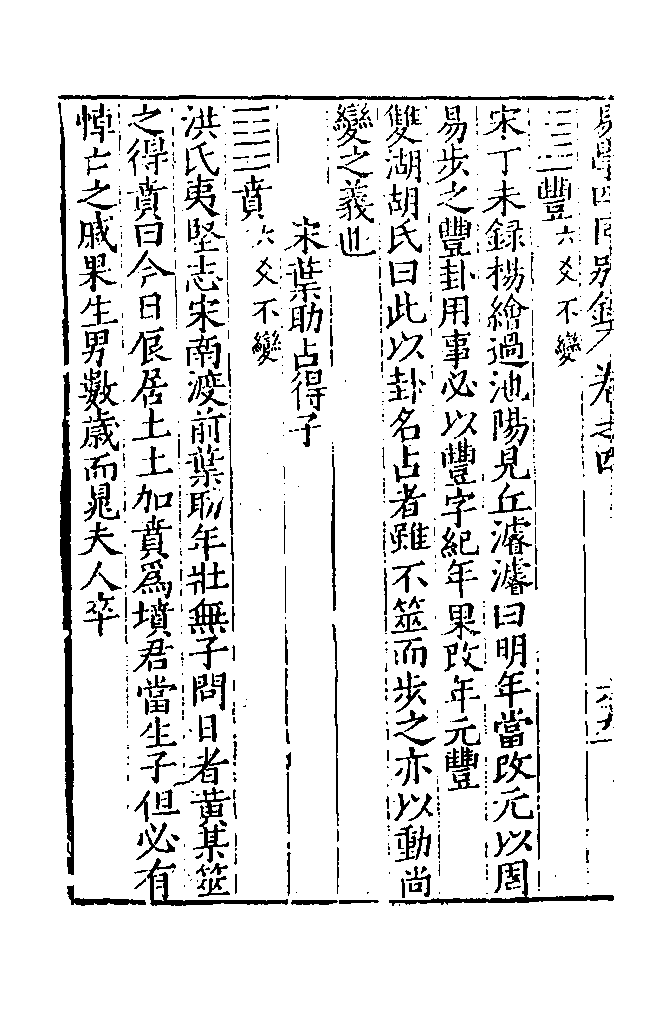 易學四同別錄 卷之四
䷶豐六爻不變
宋丁未録楊繪過池陽見丘濬濬曰明年當改元以周
易步之豐卦用事必以豐字紀年果改年元豐
雙湖胡氏曰此以卦名占者雖不筮而步之亦以動尚
變之義也
宋葉助占得子
䷕賁六爻不變
洪氏夷堅志宋南渡前葉助年壯無子問日者黄某筮
之得賁曰今日㑴居土土加賁爲墳君當生子但必有
悼亡之戚果生男數歲而晁夫人卒